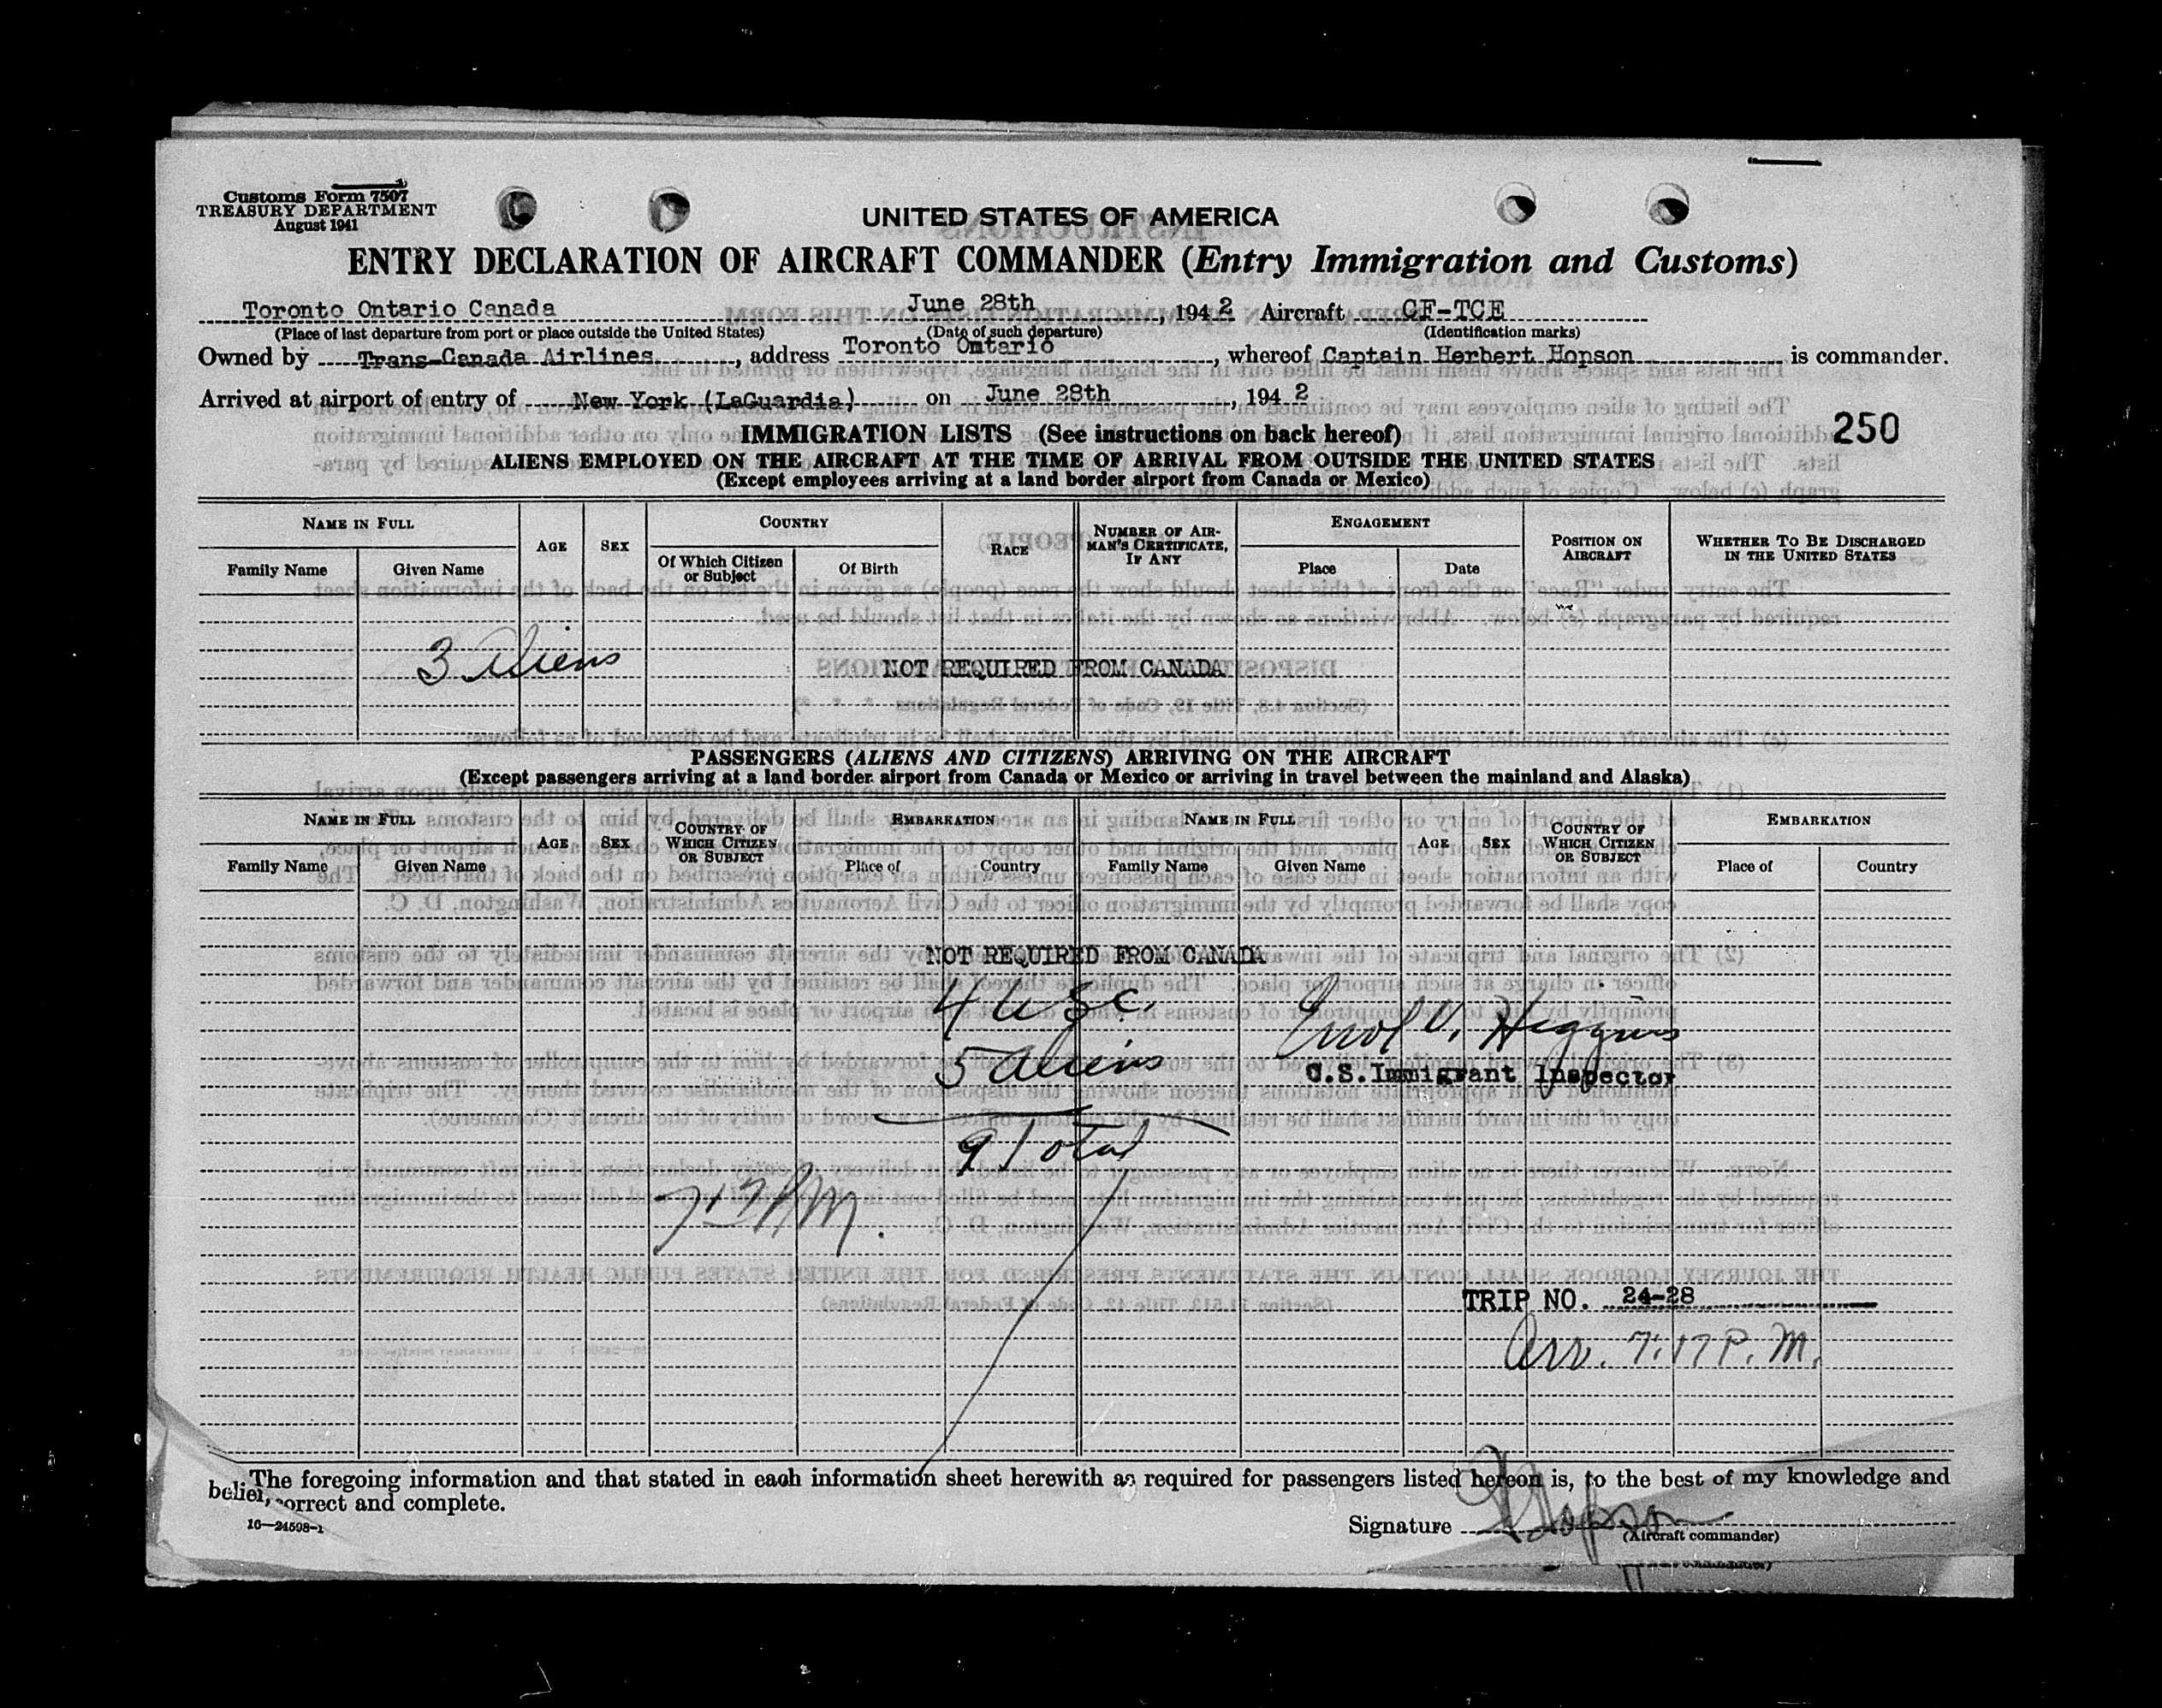 Customs Form 7507
TREASURY DEPARTMENT
August 1941
UNITED STATES OF AMERICA
ENTRY DECLARATION OF AIRCRAFT COMMANDER (Entry Immigration and Customs)
Toronto Ontario Canada June 28th, 1942 Aircraft CF-TCE
(Place of last departure from port or place outside the United States) (Date of such departure) (Identification marks)
Owned by Trans-Canada Airlines, address Toronto Ontario, whereof Captain Herbert Hopson is commander.
Arrived at airport of entry of New York (LaGuardia) on June 28th, 1942
250
IMMIGRATION LISTS (See instructions on back hereof)
ALIENS EMPLOYED ON THE AIRCRAFT AT THE TIME OF ARRIVAL FROM OUTSIDE THE UNITED STATES
(Except employees arriving at a land border airport from Canada or Mexico)
NAME IN FULL
Family Name Given Name
AGE
SEX
COUNTRY
Of Which Citizen or Subject
Of Birth
RACE
NUMBER OF AIRMAN'S CERTIFICATE, IF ANY
ENGAGEMENT
Place Date
POSITION ON AIRCRAFT
WHETHER TO BE DISCHARGED IN THE UNITED STATES
3 Aliens
NOT REQUIRED FROM CANADA
PASSENGERS (ALIENS AND CITIZENS) ARRIVING ON THE AIRCRAFT
(Except passengers arriving at a land border airport from Canada or Mexico or arriving in travel between the mainland and Alaska)
NAME IN FULL
Family Name Given Name
AGE
SEX
COUNTRY OF WHICH CITIZEN OR SUBJECT
EMBARKATION
Place of Country
NAME IN FULL
Family Name Given Name
AGE
SEX
COUNTRY OF WHICH CITIZEN OR SUBJECT
EMBARKATION
Place of Country
NOT REQUIRED FROM CANADA
4 USC.
5 Aliens
9 Total
Errol V. Higgins
U.S. Immigrant Inspector
TRIP NO. 24-28
Arr. 7:17 P.M.
The foregoing information and that stated in each information sheet herewith as required for passengers listed hereon is, to the best of my knowledge and
belief, correct and complete.
16—24598-1
Signature HHopson
(Aircraft commander)